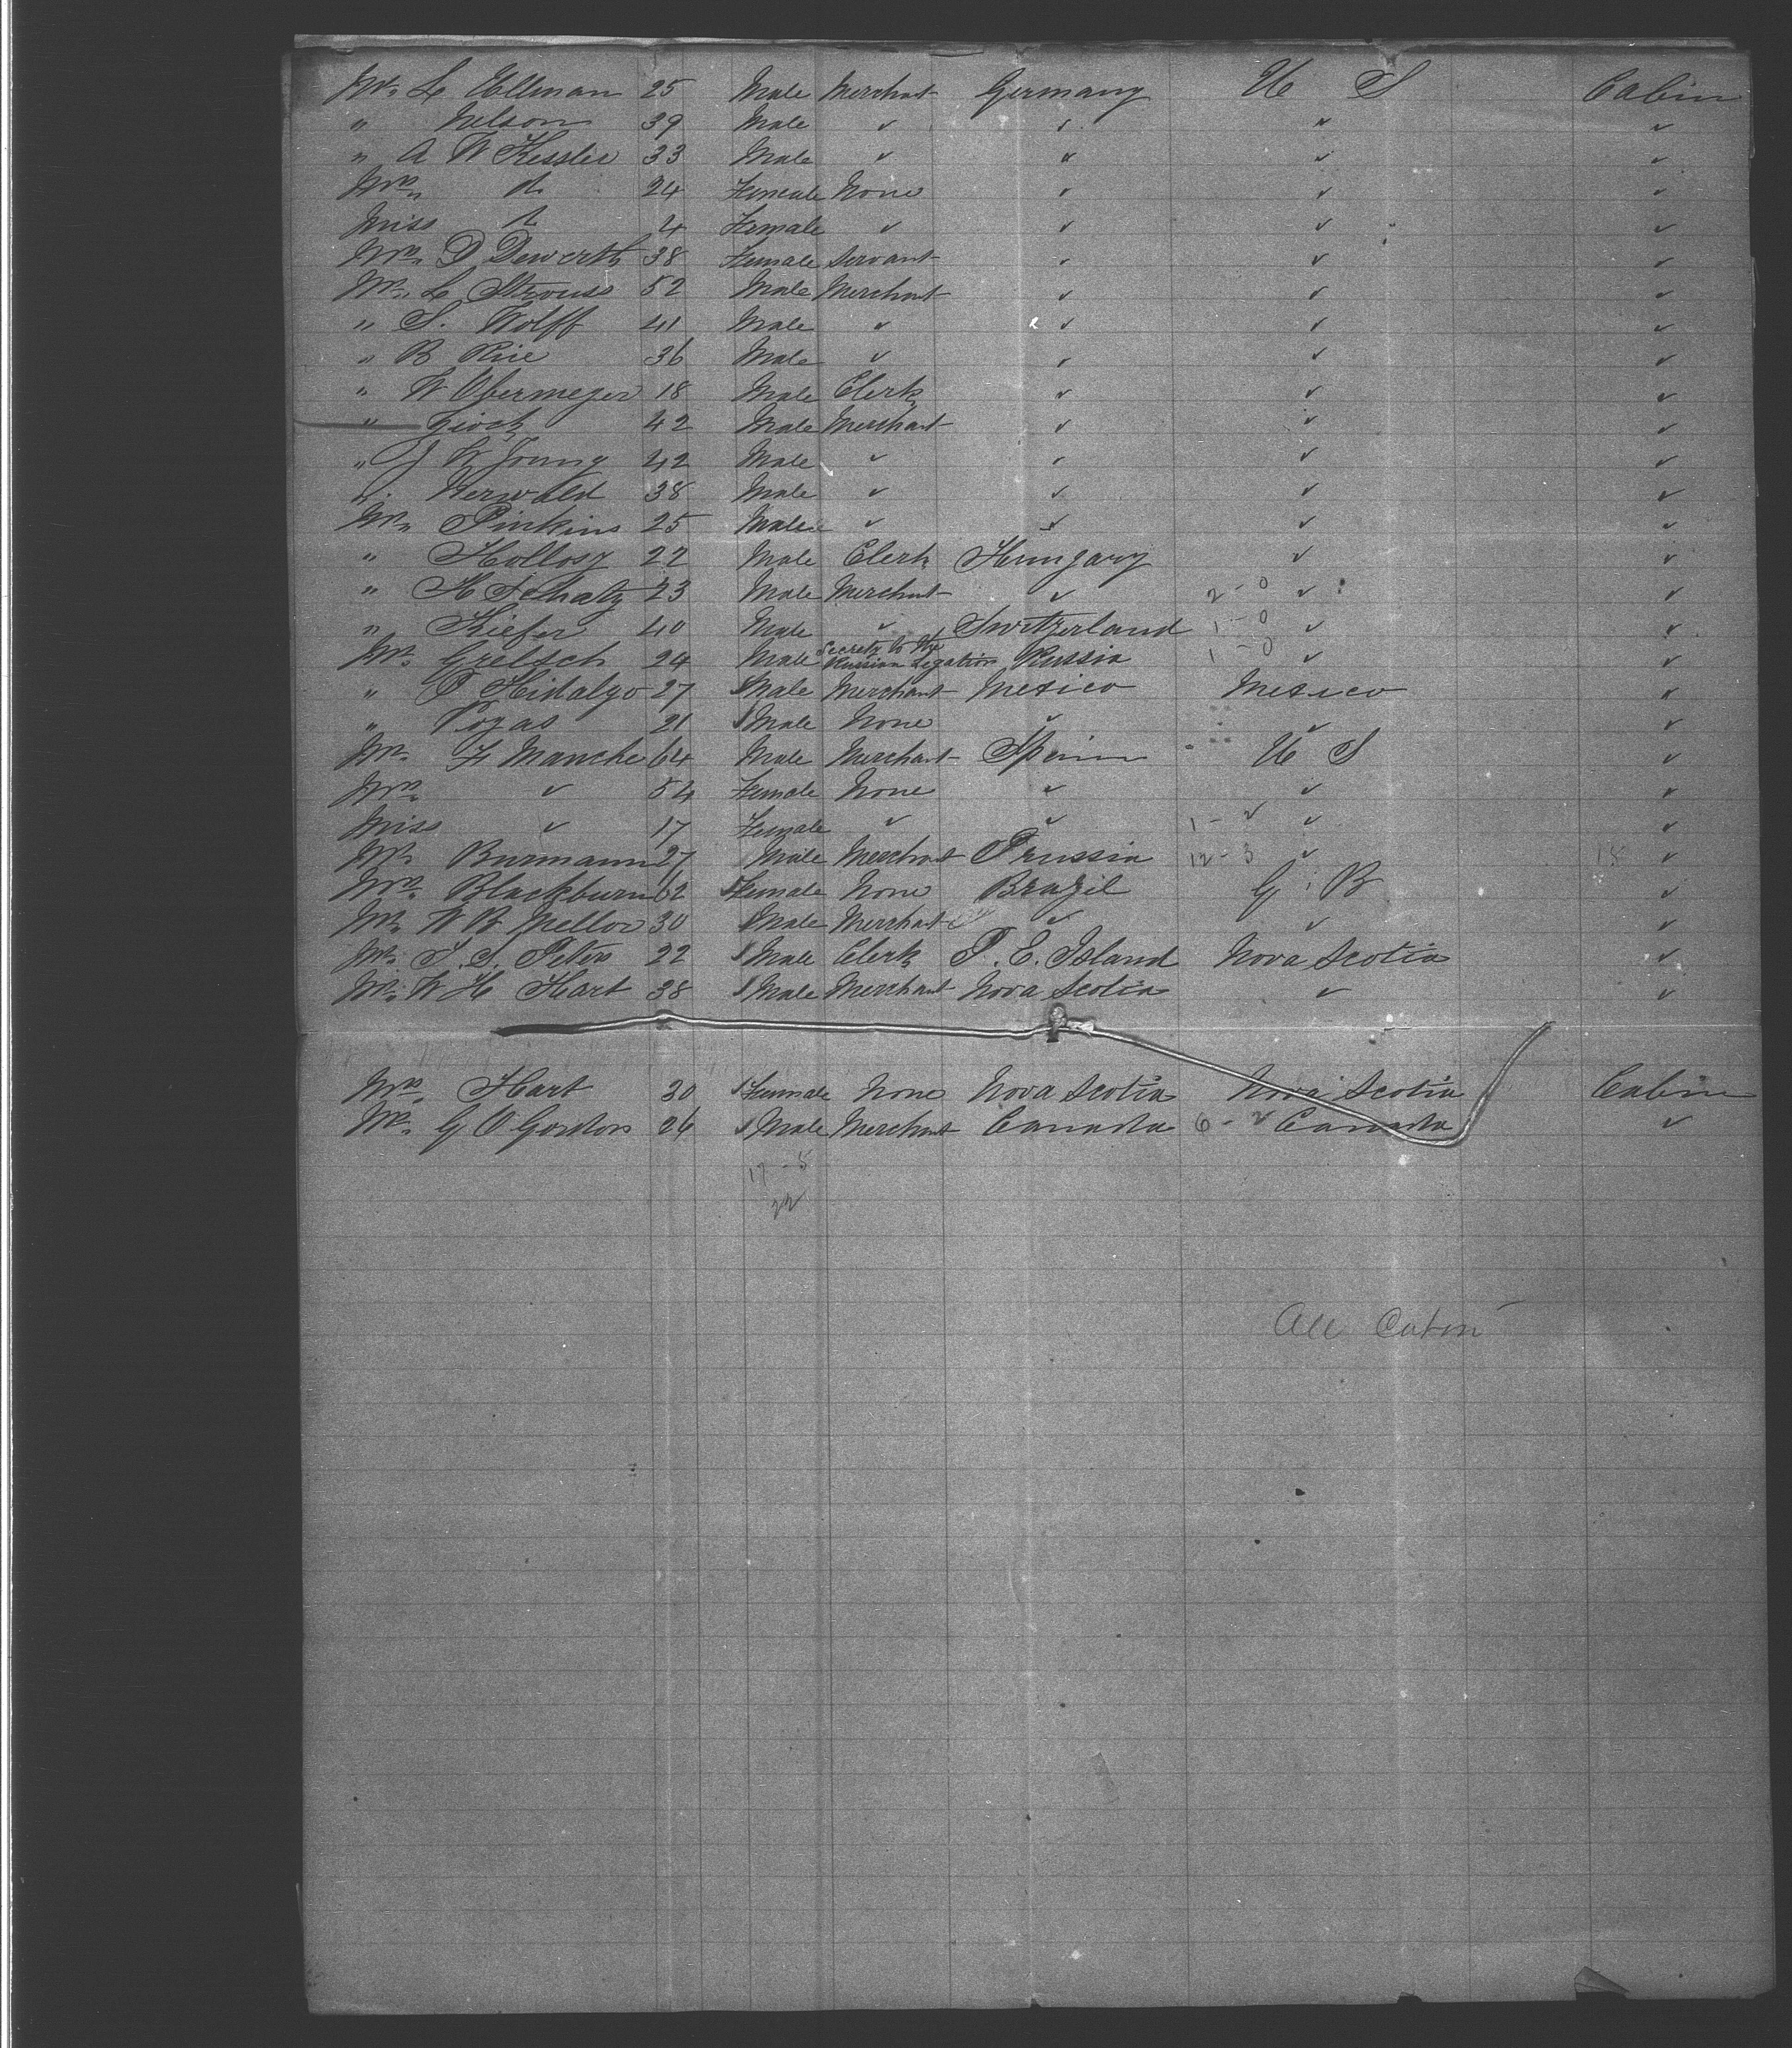 Mr. L Ullman 25 Male Merchant Germany U S Cabin
" Nelson 39 Male " " " "
" A W Kessler 33 Male " " " "
Mrs. do 24 Female None " " "
Miss do 4 Female " " " "
Mrs. D Dewerth 38 Female Servant " " "
Mr. L Strouss 52 Male Merchant " " "
" S. Wolff 41 Male " " " "
" B Rice 36 Male " " " "
" W Obermeyer 18 Male Clerk " " "
" 42 Male Merchant " " "
" J W Young 42 Male " " " "
" Herwald 38 Male " " " "
Mr. Pinkins 25 Male " " " "
" Hollosy 22 Male Clerk Hungary " "
" H Schatz 23 Male Merchant " 2-0 " "
" Kiefer 40 Male " Switzerland 1-0 " "
Mr. Gretsch 24 Male Secrety to the Russian Legation Russia 1-0 " "
" P Hidalgo 27 Male Merchant Mexico Mexico "
" Pozas 21 Male None " " "
Mr. F Manche 64 Male Merchant Spain U S "
Mrs. " 54 Female None " " "
Miss " 17 Female " " 1-2 " "
Mr. Burmann 27 Male Merchant Prussia 12-3 " 15 "
Mrs. Blackburn 62 Female None Brazil G B "
Mr. W B Mellor 30 Male Merchant " " "
Mr. S. S. Peters 22 Male Clerk P. E. Island Nova Scotia "
Mr. W H Hart 38 Male Merchant Nova Scotia " "
Mrs. Hart 30 Female None Nova Scotia Nova Scotia Cabin
Mr. G O Gordon 26 Male Merchant Canada 6-2 Canada "
17-5
22
All Cabin